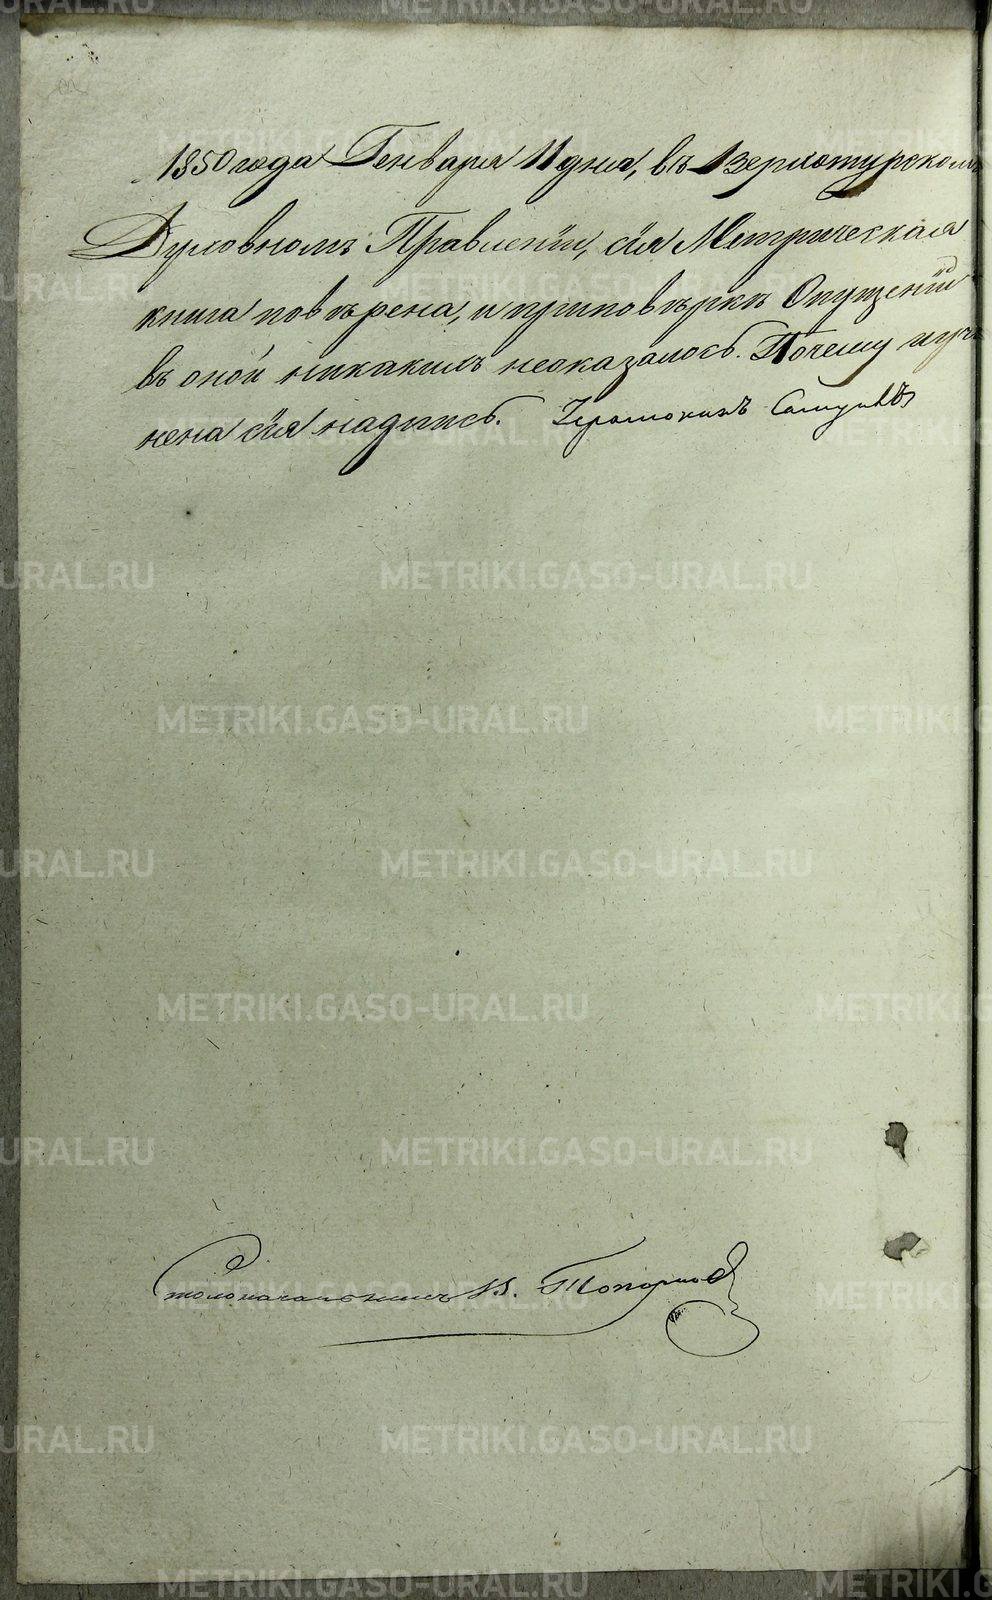 1850 года Генваря 11 дня, въ Верхотурскомъ
Духовномъ Правленіи, сія Метрическая
книга повѣрена, и приповѣркѣ Опущеній
въ оной никакихъ неоказалось. Почему и учи-
нена сія надпись. Іеромонахъ
Столоначальникъ В. Топорковъ
METRIKI.GASO-URAL.RU